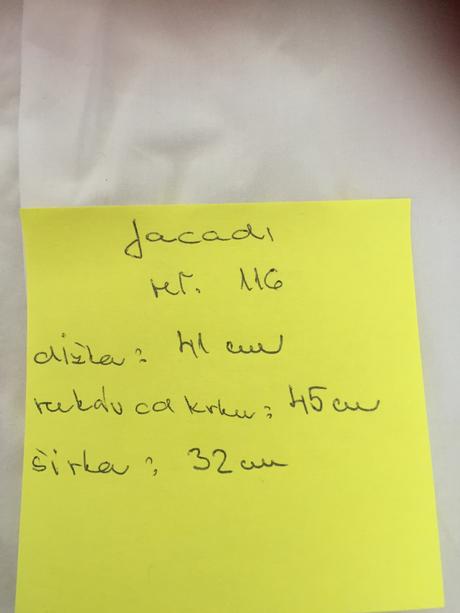 Jacadi
veľ. 116
dĺžka: 41 cm
rukáv od krku: 45 cm
šírka: 32 cm